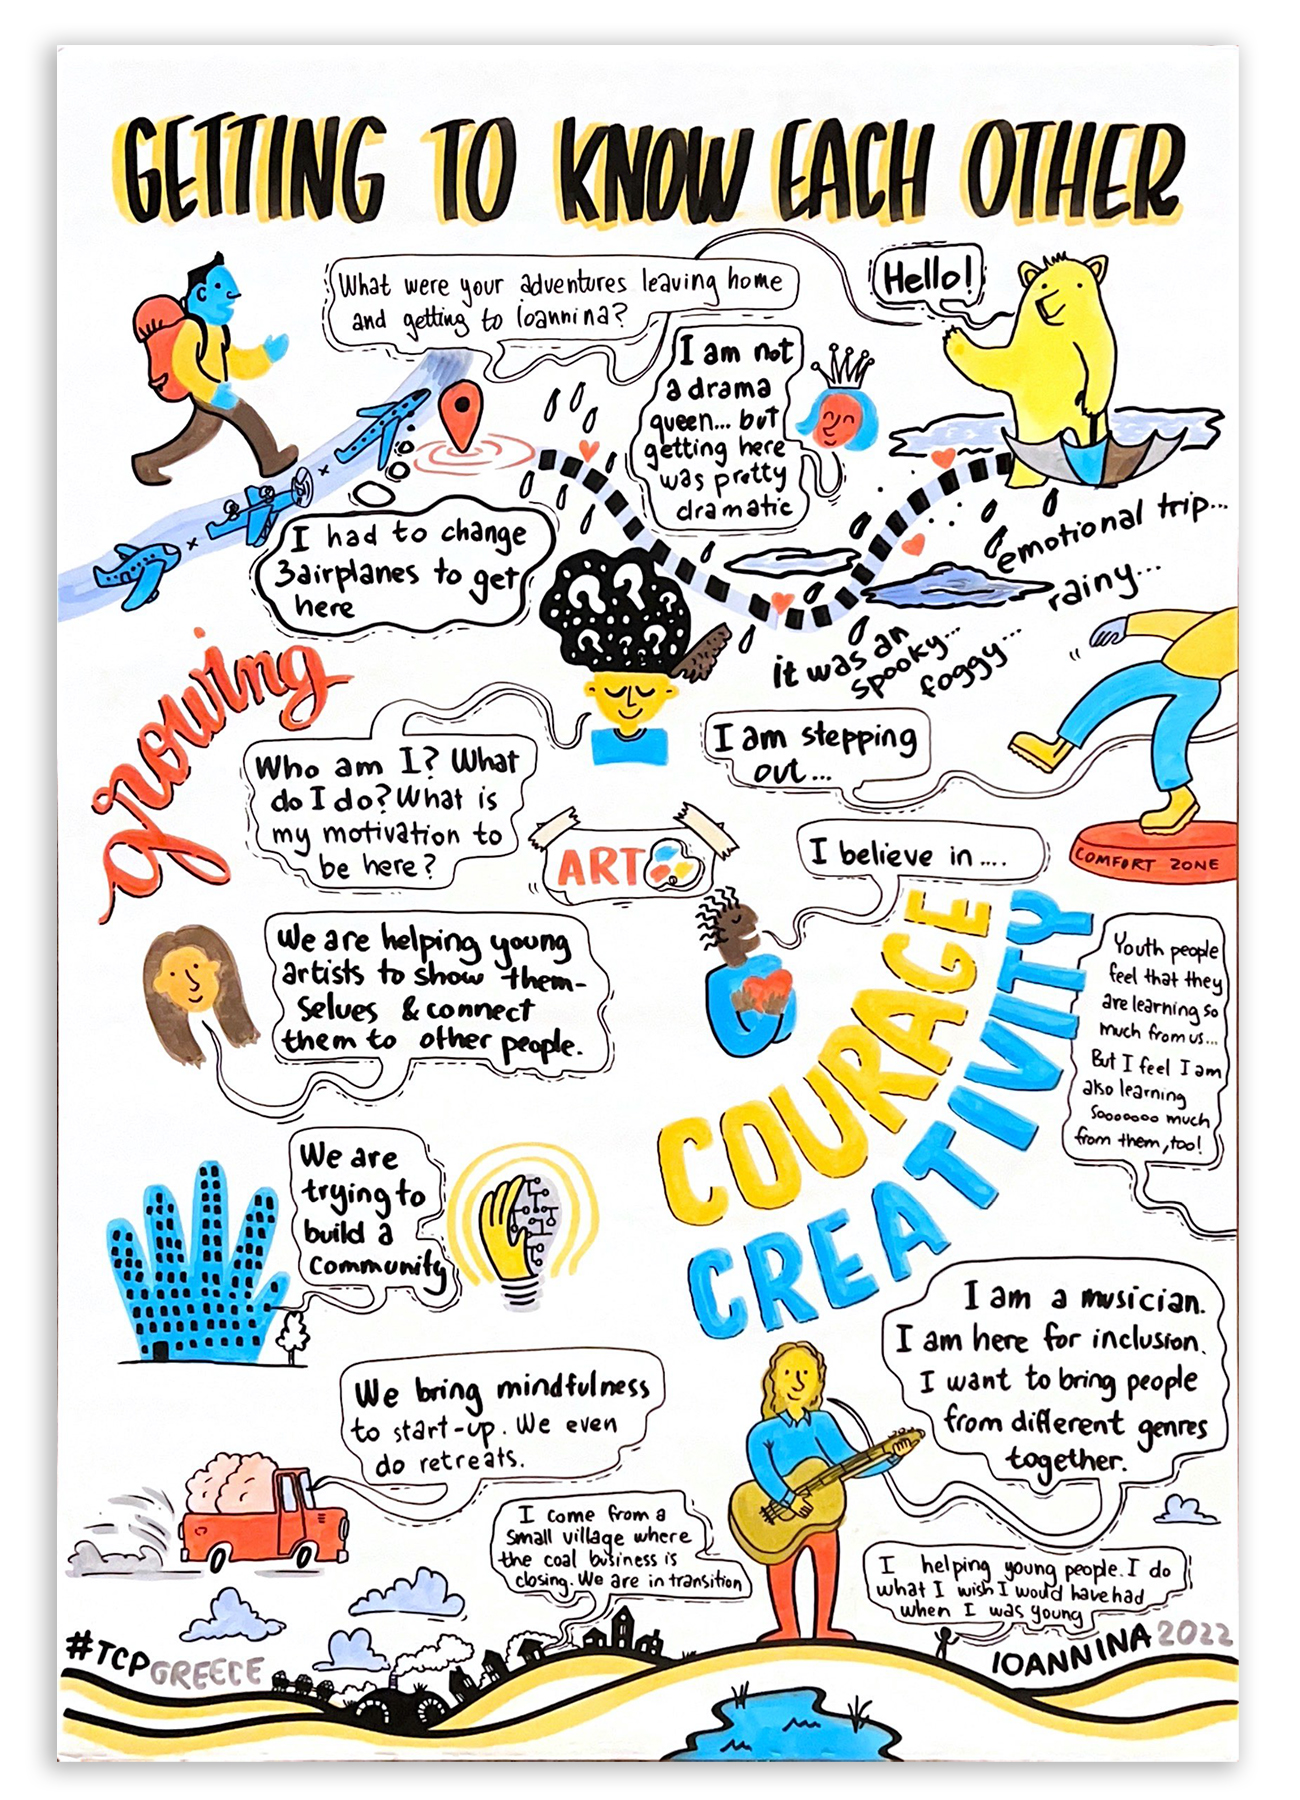 GETTING TO KNOW EACH OTHER
What were your adventures leaving home
and getting to Ioannina?
Hello!
I am not
a drama
queen... but
getting here
was pretty
dramatic
I had to change
3airplanes to get
here
emotional trip...
rainy...
it was an
spooky...
foggy...
growing
Who am I? What
do I do? What is
my motivation to
be here?
I am stepping
out...
COMFORT ZONE
ART
I believe in ....
COURAGE
CREATIVITY
We are helping young
artists to show them-
selves & connect
them to other people.
Youth people
feel that they
are learning so
much from us...
But I feel I am
also learning
Sooooooo much
from them, too!
We are
trying to
build a
Community
I am a musician.
I am here for inclusion.
I want to bring people
from different genres
together.
We bring mindfulness
to start-up. We even
do retreats.
I come from a
Small village where
the coal business is
closing. We are in transition
I helping young people. I do
what I wish I would have had
when I was young
#TCP GREECE
IOANNINA 2022